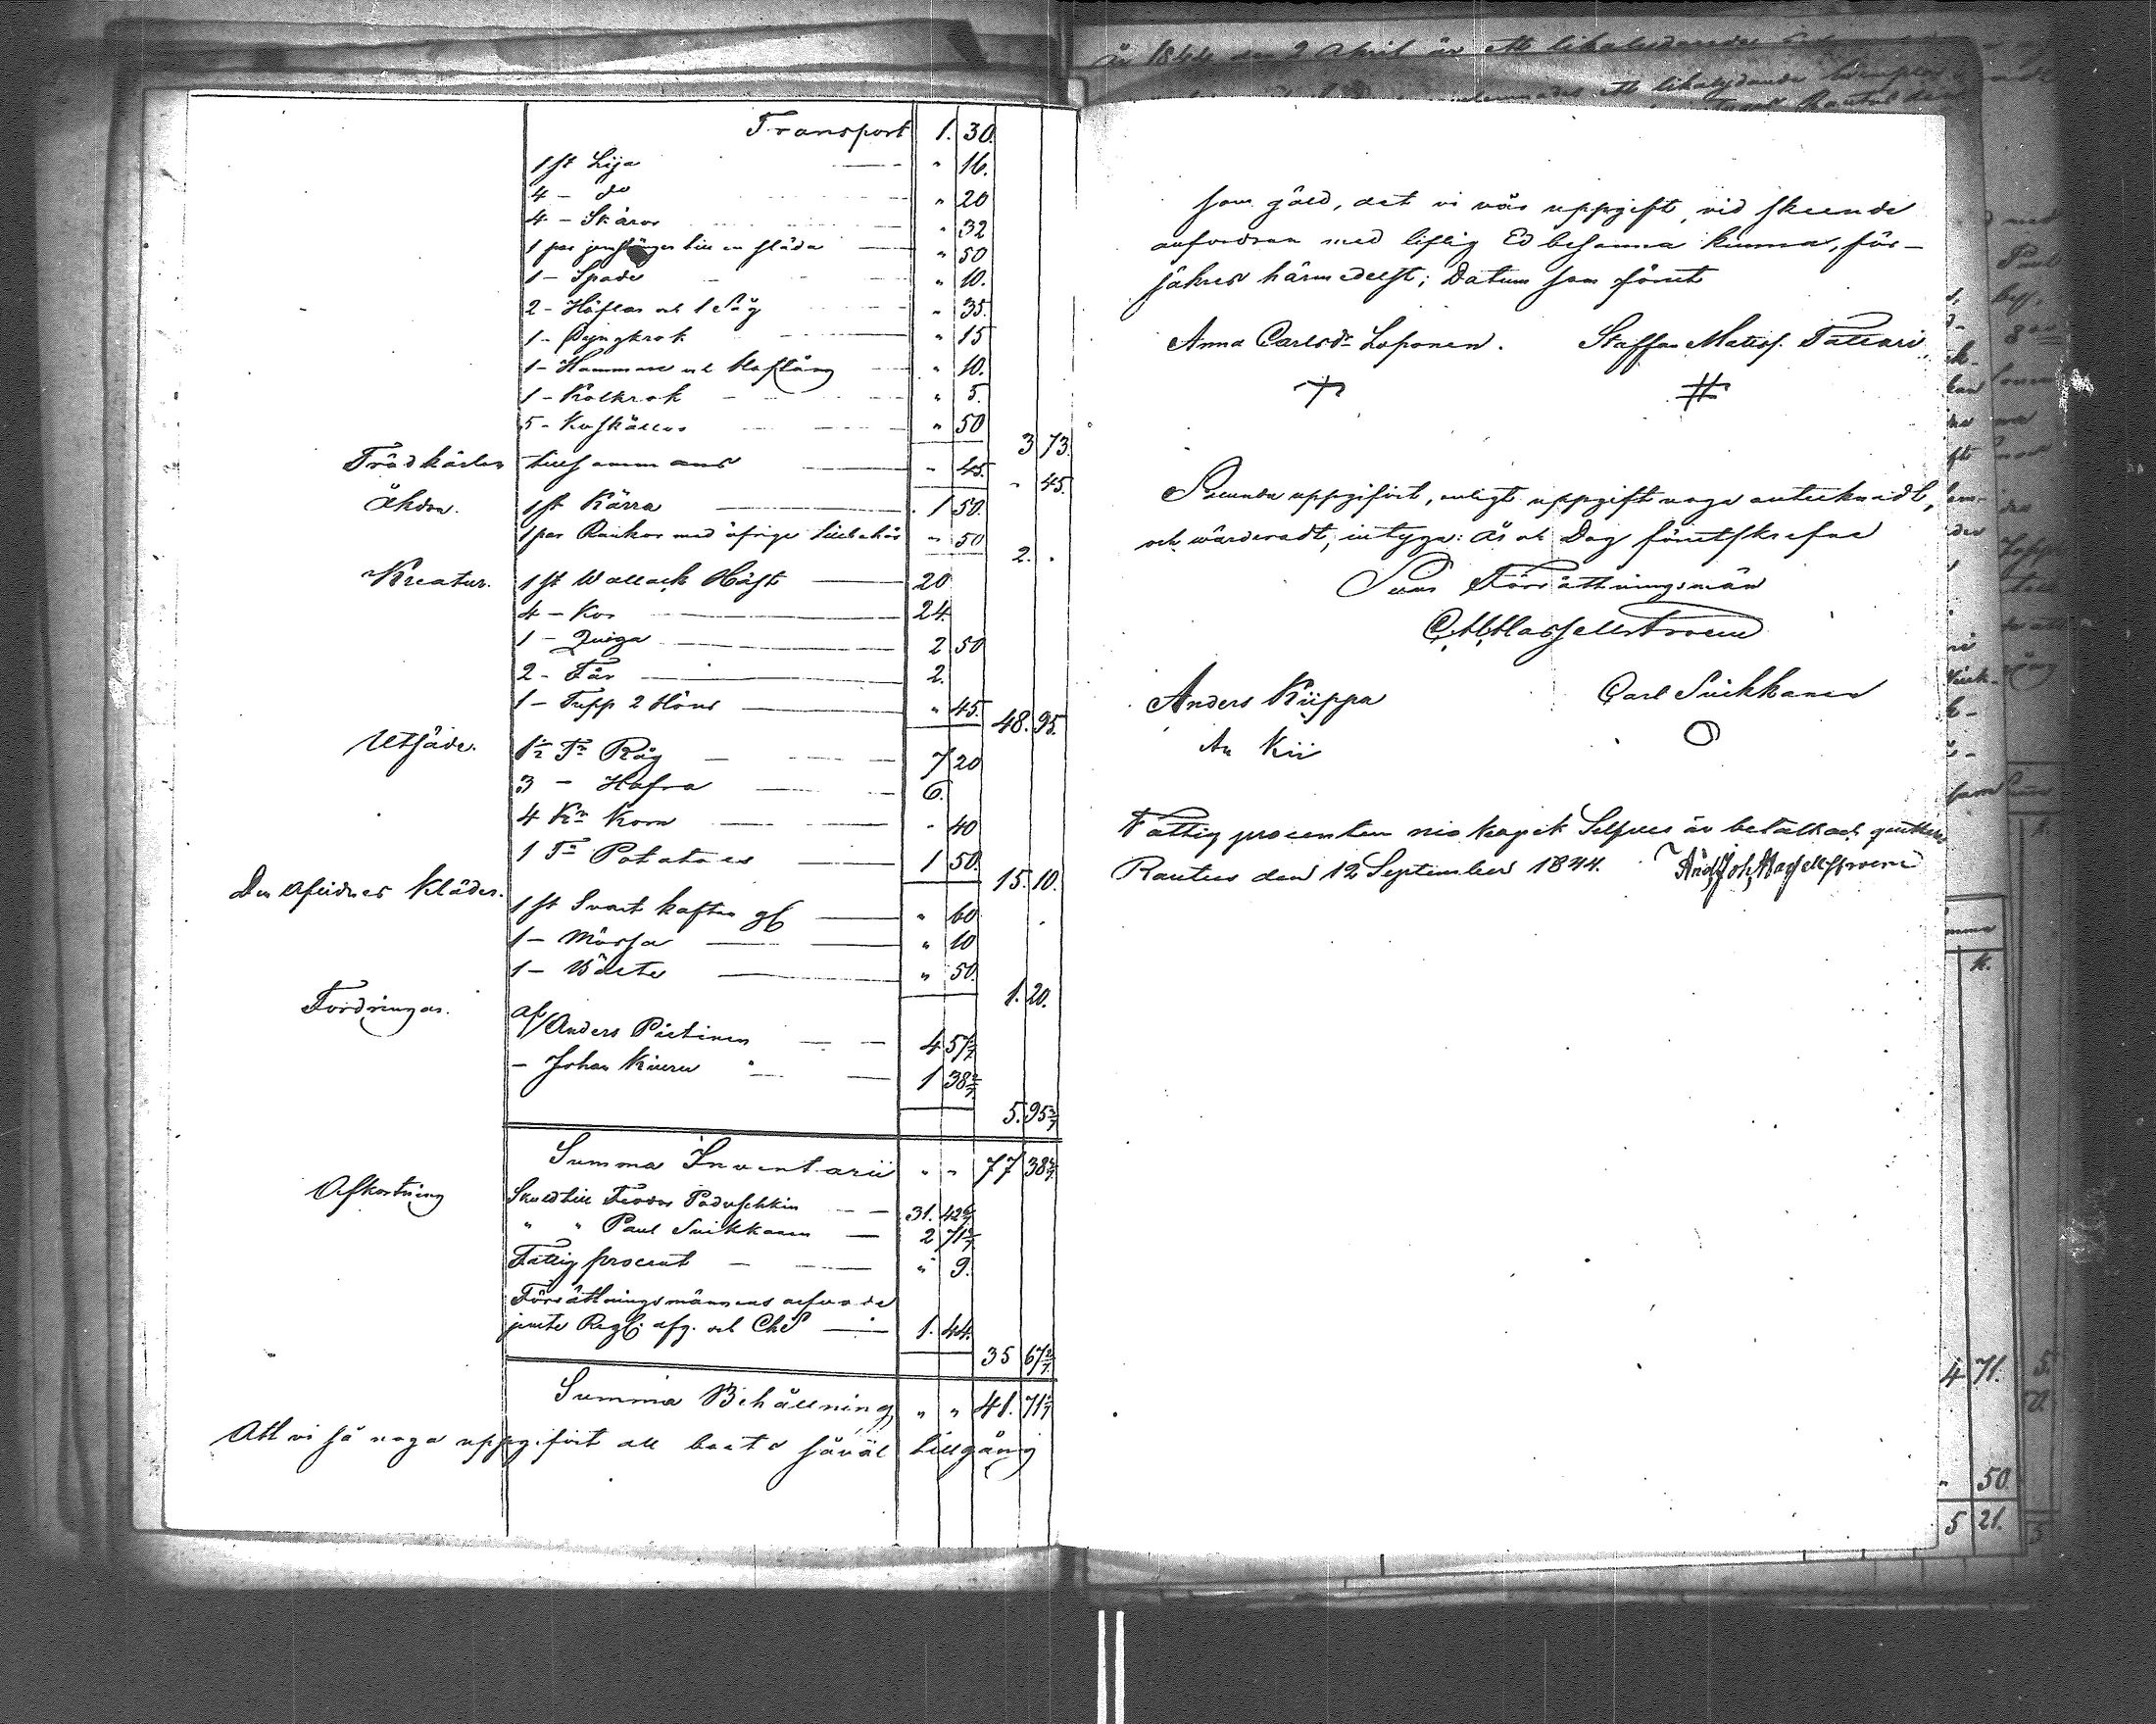 Transport 1. 30.
1 st Lija " 16.
4 - do " 20
4 - Skäror " 32
1 par jernstänger till en släda " 50
1 - Spade " 10.
2 - Höflar och 1 Såg " 35.
1 - Dyngkrok " 15
1 - Hammare och Hoftång " 10.
1 - Kolkrok " 5.
5 - Koskällor " 50
3 73.
Trädkärler tillsammans " 45. " 45.
Åkdon. 1 st Kärra 1 50.
1 par Rankor med öfrige tillbehör " 50
2. "
Kreatur. 1 st Wallack Häst 20
4 - Kor 24.
1 - Quiga 2 50
2 - Får 2.
1 - Tupp 2 Höns " 45. 48. 95.
Utsäde. 1½ Tr Råg 7 20
3 - Hafra 6.
4 Kr Korn " 40
1 Ta Potatoes 1 50.
15. 10.
Den Aflidnes Kläder. 1 st Svart kaftan gl " 60
1 - Mössa " 10
1 - Bälte " 50.
1. 20.
Fordringar. af Anders Pietinen 4 57 1/7
- Johan Kiuru 1 38 2/7
5. 95 3/7
Summa Inventarii " " 77 38 3/7
Afkortning Skuld till Feodor Paduschkin 31. 42 6/7
" " Paul Suikkanen 2 71 3/7
Fattig procent " 9.
Förrättningsmännens arfvode
jemte Regl: afg. och ChS 1. 44.
35 67 2/7
Summa Behållning " " 41. 71 1/7
Att vi så noga uppgifvit all boets såväl tillgång
som gäld, att vi vår uppgift, vid skeende
anfordran med liflig Ed besanna kunna, för-
säkres härmedelst; Datum som förut
Anna Carlsdr Loponen. Staffan Matsss. Tattari
Sålunda uppgifvit, enligt uppgift noga antecknadt,
och wärderadt, intyga: År och Dag förutskrefne
Som Förrättningsmän
C. H. Hassellstroem
Anders Kiippa Carl Suikkanen
An Kii O
Fattig procenten nio kopek Silfver är betalt och qvitteras
Rautus den 12 September 1844. And: Joh. Hassellstroem
År 1844 den 2 April är ett likalydande
ett likalydande
4 71.
" 50
5 21.